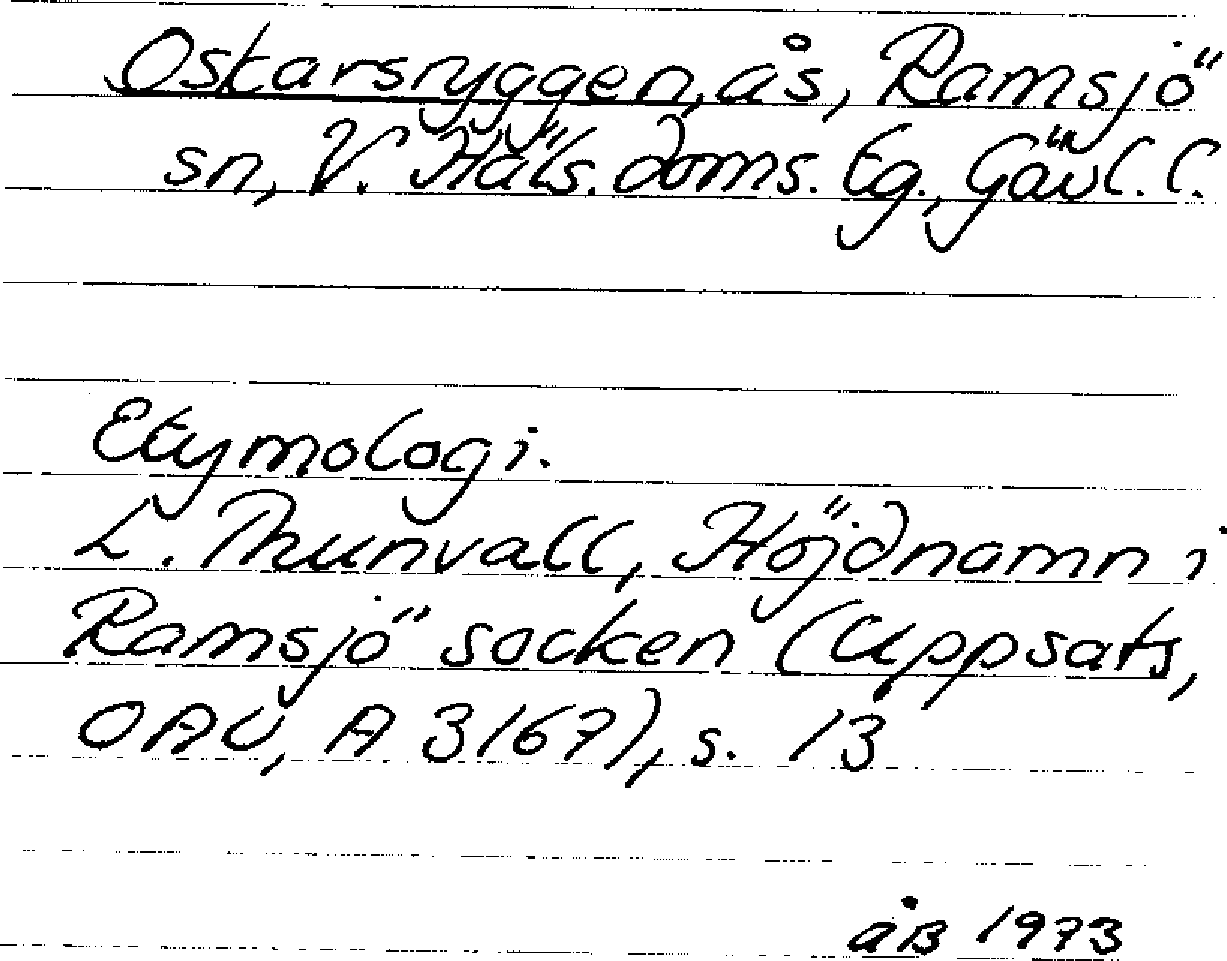 Oskarsryggen, ås, Ramsjö
sn, V. Häls. doms. tg., Gävl. l.
Etymologi.
L. Thunvall, Höjdnamn i
Ramsjö socken (Uppsats,
OAU, A 3167), s. 13
åB 1973